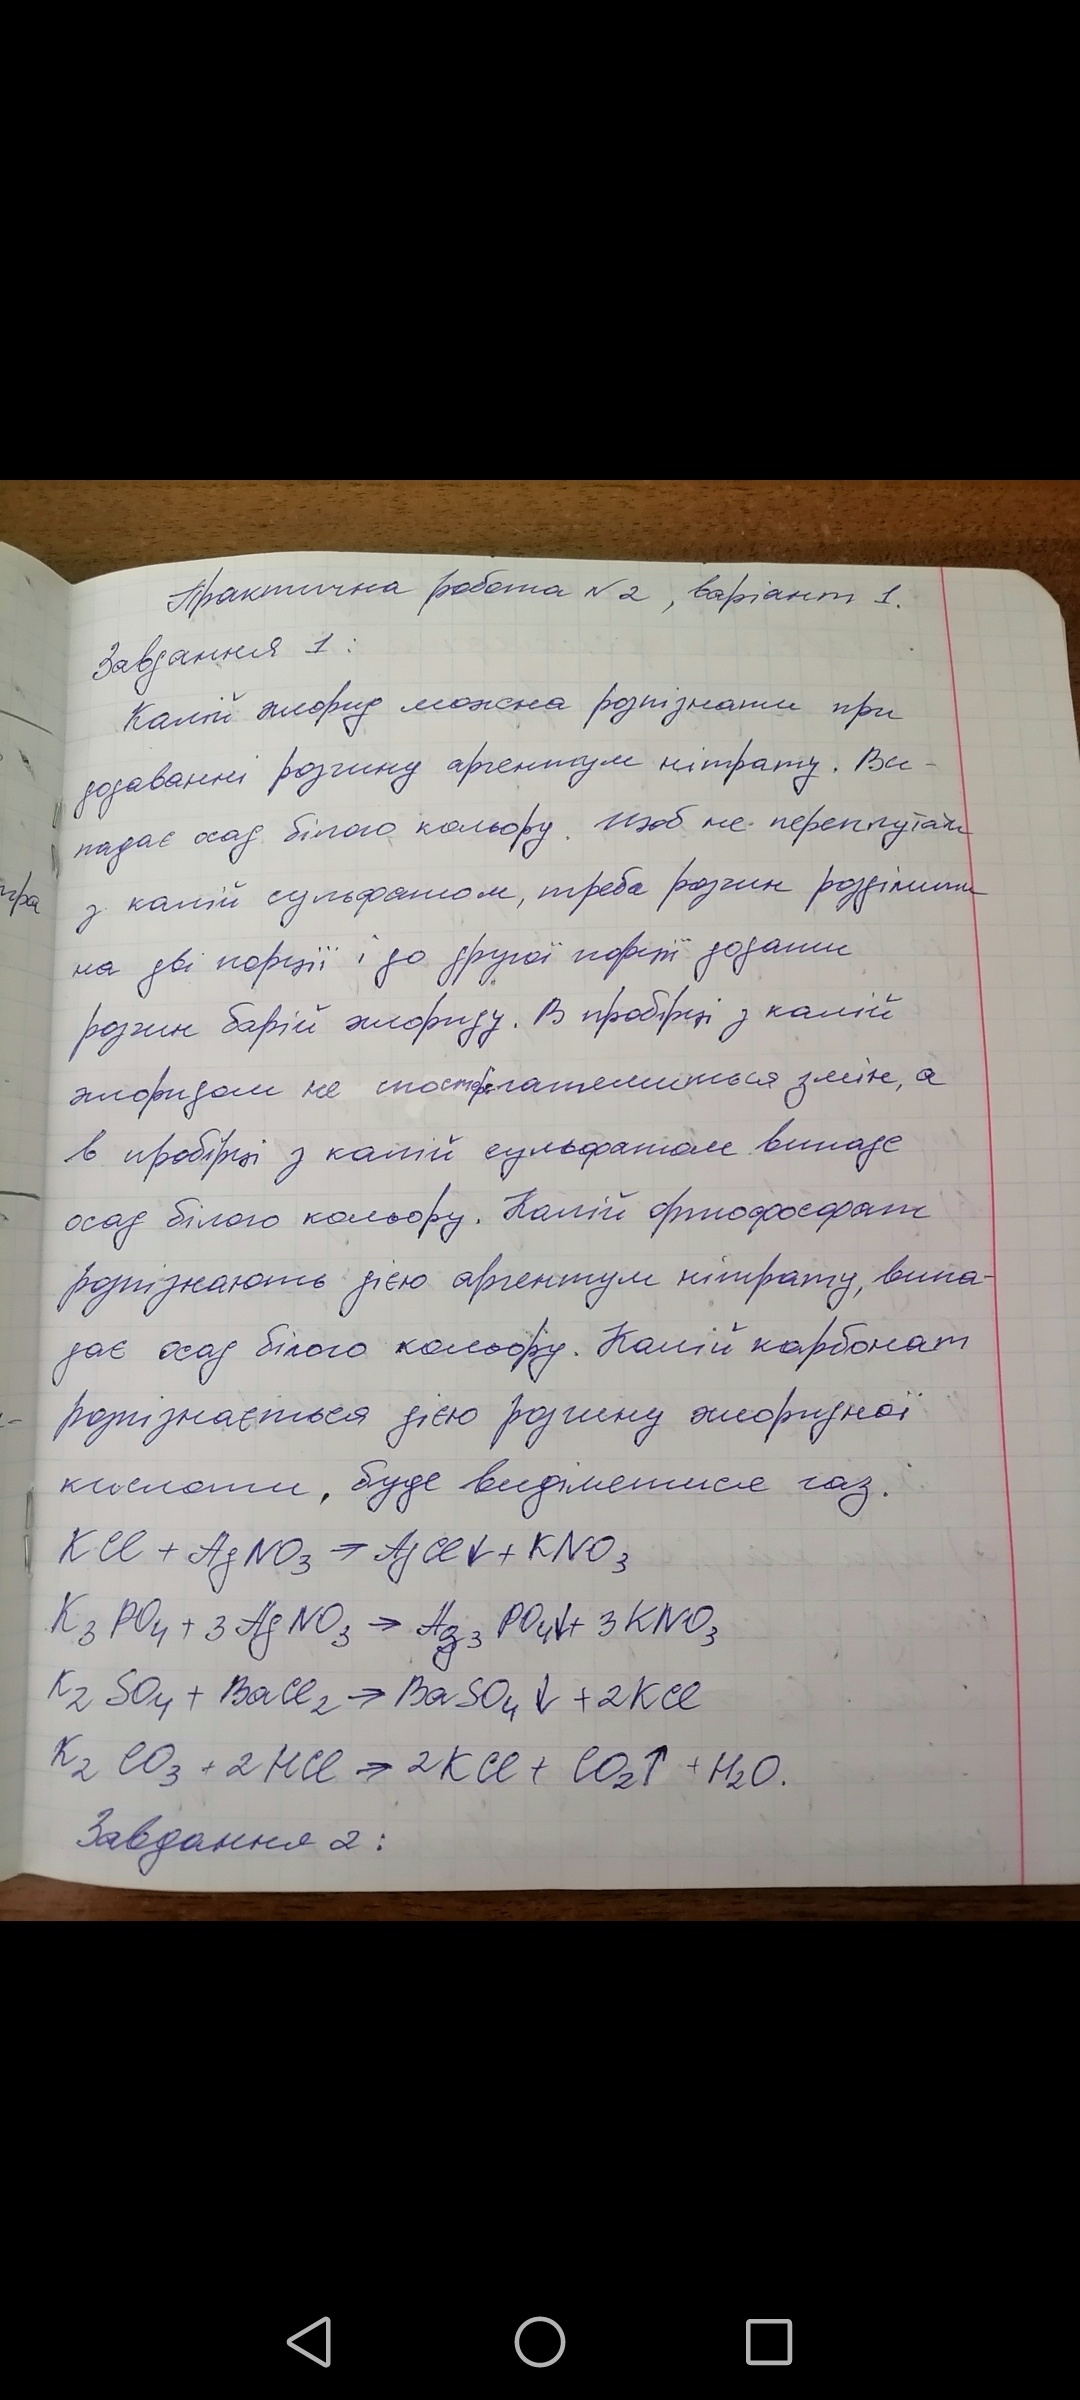 гра
Практична робота №2, варіант 1.
Завдання 1:
Калій хлорид можна розпізнати при
додаванні розчину аргентум нітрату. Ви-
падає осад білого кольору. Щоб не переплутати
з калій сульфатом, треба розчин розділити
на дві порції і до другої порції додати
розчин барій хлориду. В пробірці з калій
хлоридом не спостерігатиметься змін, а
в пробірці з калій сульфатом випаде
осад білого кольору. Калій ортофосфат
розпізнають дією аргентум нітрату, випа-
дає осад білого кольору. Калій карбонат
розпізнається дією розчину хлоридної
кислоти, буде виділятися газ.
KCl + AgNO₃ → AgCl↓ + KNO₃
K₃PO₄ + 3AgNO₃ → Ag₃PO₄↓ + 3KNO₃
K₂SO₄ + BaCl₂ → BaSO₄↓ + 2KCl
K₂CO₃ + 2HCl → 2KCl + CO₂↑ + H₂O.
Завдання 2: